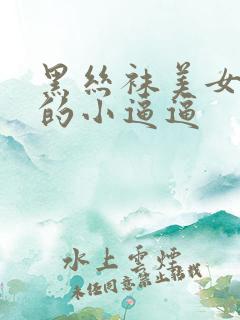 黑丝袜美女
的小逼逼
水上雲煙
未经同意禁止转载